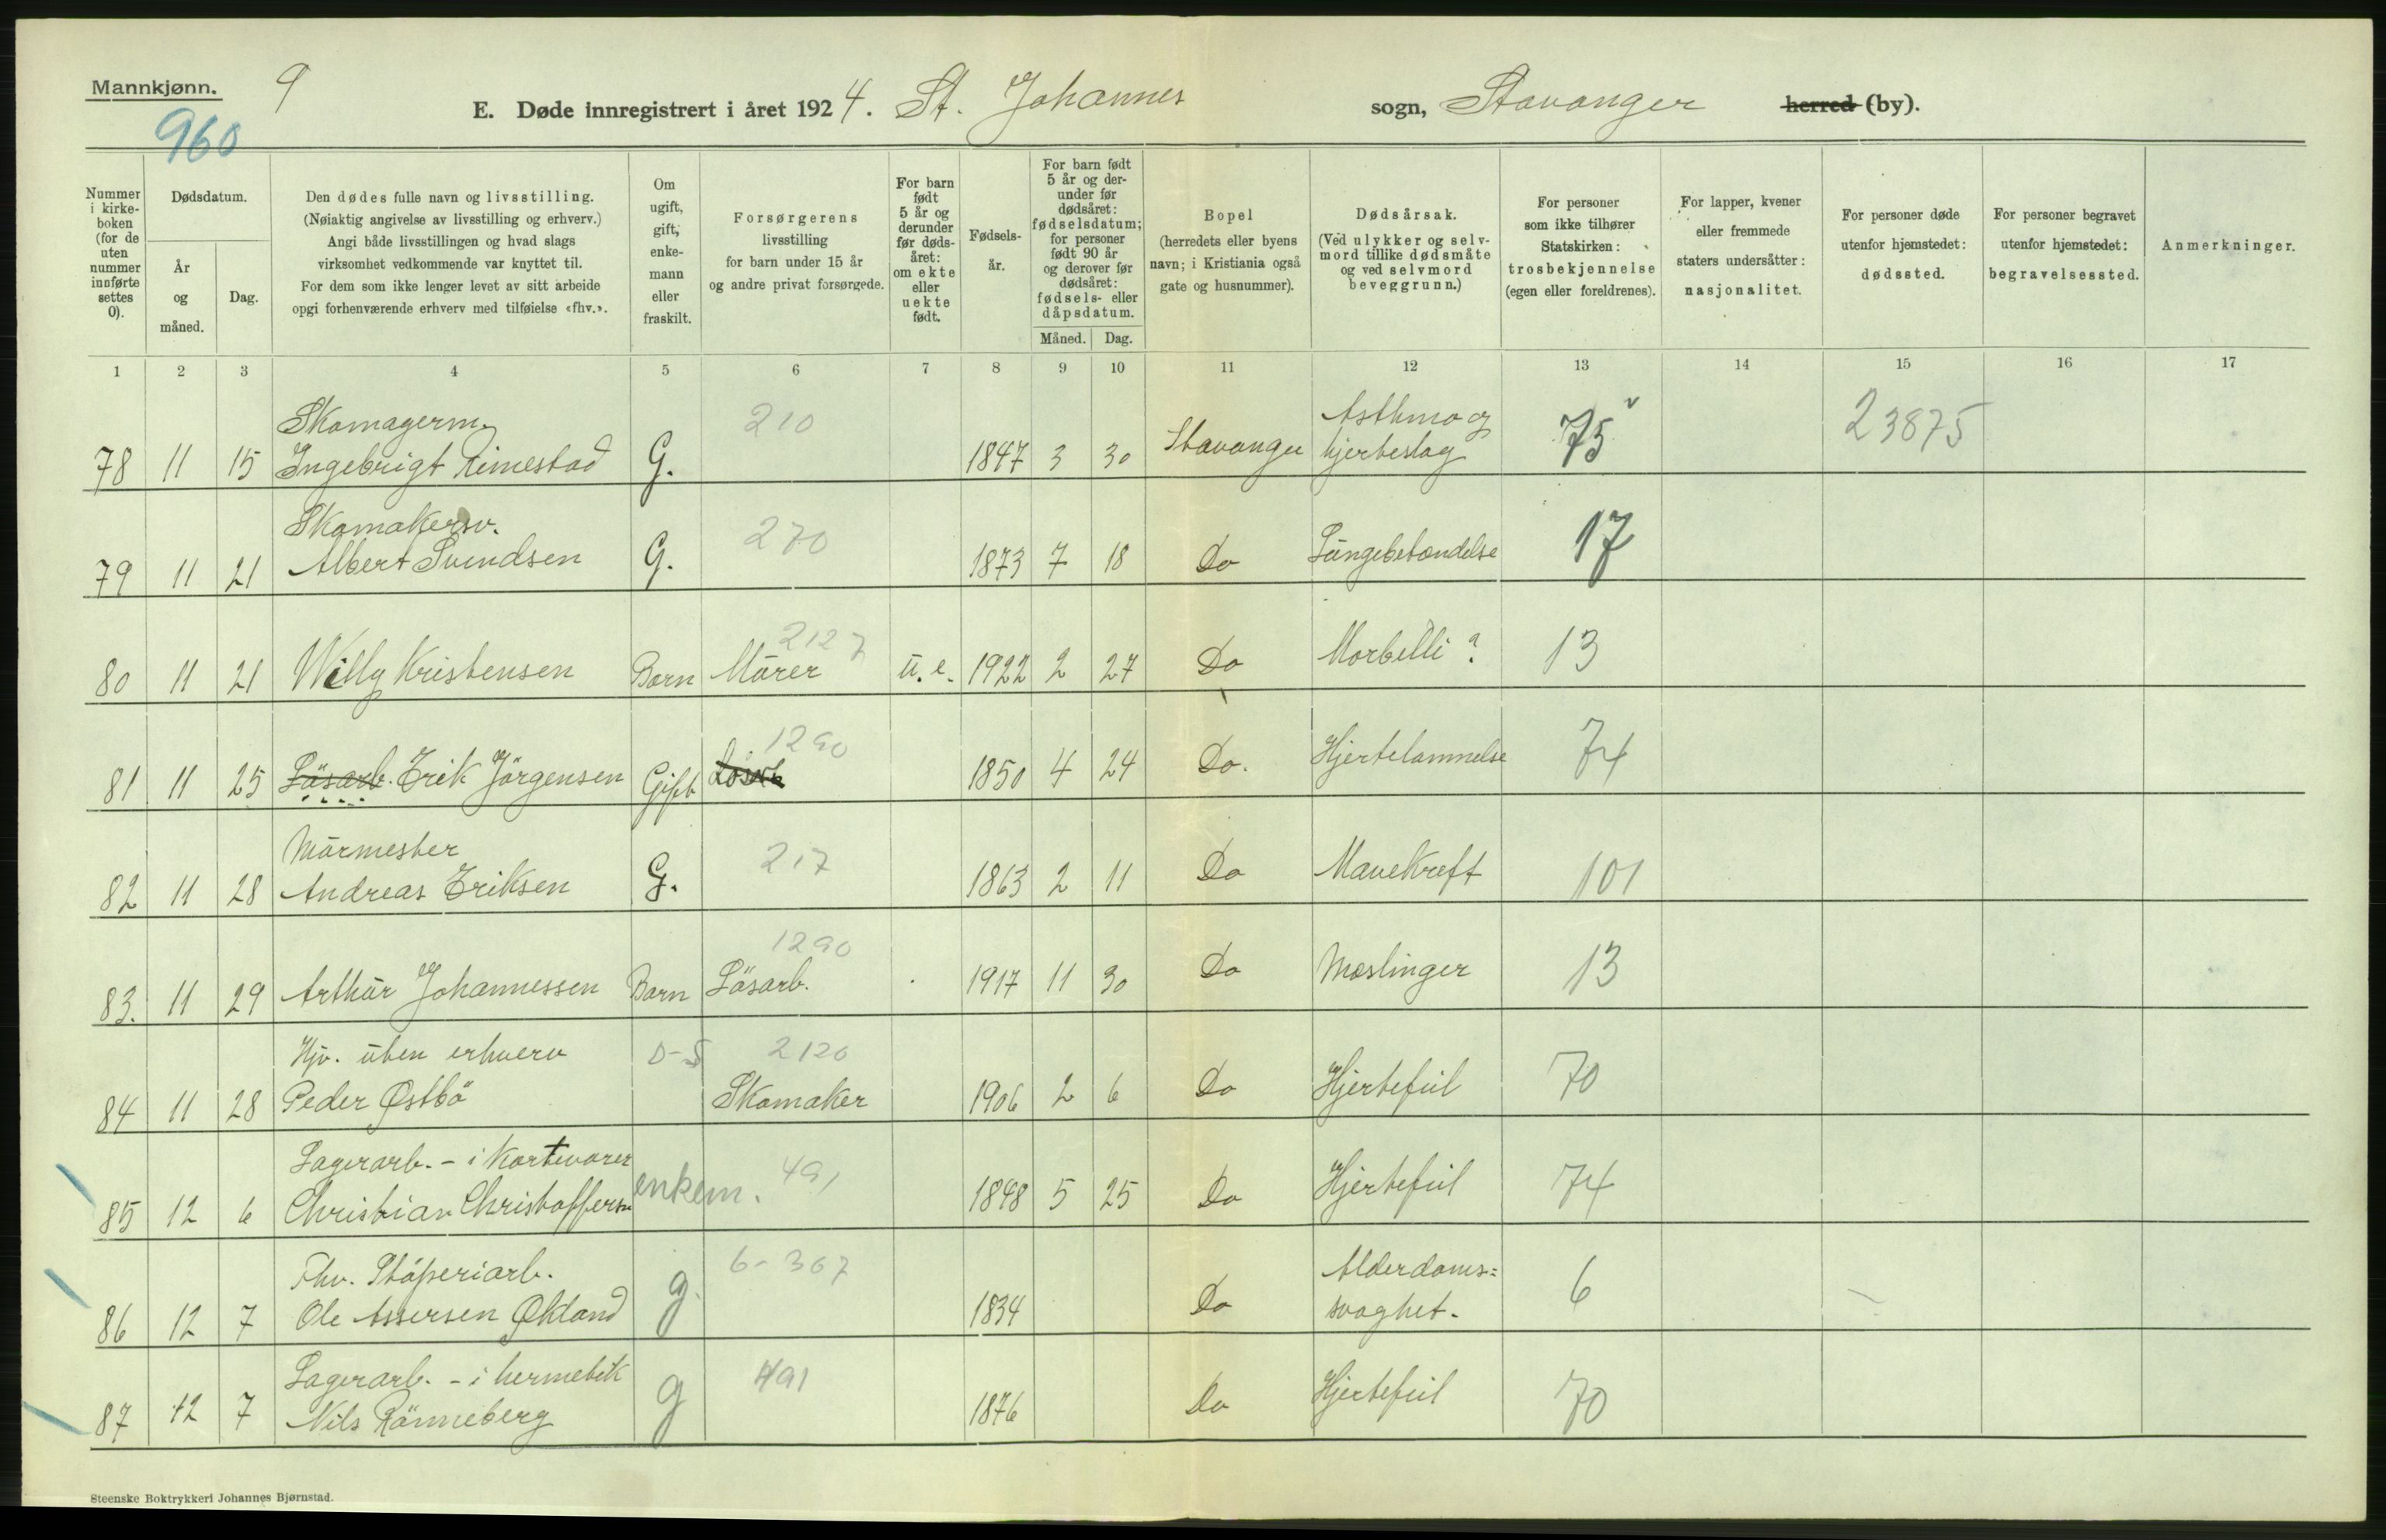 Mannkjønn.
9
E. Døde innregistrert i året 1924. St. Johannes sogn, Stavanger herred (by).
960
Nummer i kirkeboken (for de uten nummer innførte settes 0).
Dødsdatum.
År og måned.
Dag.
Den dødes fulle navn og livsstilling.
(Nøiaktig angivelse av livsstilling og erhverv.)
Angi både livsstillingen og hvad slags
virksomhet vedkommende var knyttet til.
For dem som ikke lenger levet av sitt arbeide
opgi forhenværende erhverv med tilføielse «fhv.».
Om ugift, gift, enkemann eller fraskilt.
Forsørgerens
livsstilling
for barn under 15 år
og andre privat forsørgede.
For barn født 5 år og derunder før dødsåret: om ekte eller uekte født.
Fødselsår.
For barn født 5 år og derunder før dødsåret: fødselsdatum; for personer født 90 år og derover før dødsåret: fødsels- eller dåpsdatum.
Måned. Dag.
Bopel
(herredets eller byens
navn; i Kristiania også
gate og husnummer).
Dødsårsak.
(Ved ulykker og selvmord tillike dødsmåte
og ved selvmord
beveggrunn.)
For personer
som ikke tilhører
Statskirken:
trosbekjennelse
(egen eller foreldrenes).
For lapper, kvener
eller fremmede
staters undersåtter:
nasjonalitet.
For personer døde
utenfor hjemstedet:
dødssted.
For personer begravet
utenfor hjemstedet:
begravelsessted.
Anmerkninger.
1 2 3 4 5 6 7 8 9 10 11 12 13 14 15 16 17
Skomagerm. 210 Asthma og 75 v 23875
78 11 15 Ingebrigt Rimestad G. 1847 3 30 Stavanger hjerteslag
Skomakersv. 270 17
79 11 21 Albert Svendsen G. 1873 7 18 Do Lungebetændelse
2127
80 11 21 Willy Kristensen Barn Murer u.e. 1922 2 27 Do Morbilli ? 13
1290
81 11 25 Løsarb. Erik Jørgensen Gift 1850 4 24 Do. Hjertelammelse 74
Murmester 217
82 11 28 Andreas Eriksen G. 1863 2 11 Do Mavekreft 101
1290
83. 11 29 Arthur Johannessen Barn Løsarb. 1917 11 30 Do Meslinger 13
Hjv. uten erhverv D-S 2120
84 11 28 Peder Østbø Skomaker 1906 2 6 Do Hjertefeil 70
Lagerarb. - i Kortevarer 491
85 12 6 Christian Christoffersen enkem. 1848 5 25 Do Hjertefeil 74
Fhv. Støperiarb. 6-367 Alderdoms=
86 12 7 Ole Assersen Økland g. 1834 Do svaghet. 6
Lagerarb. - i hermetik 491
87 12 7 Nils Rønneberg g 1876 Do Hjertefeil 70
Steenske Boktrykkeri Johannes Bjørnstad.